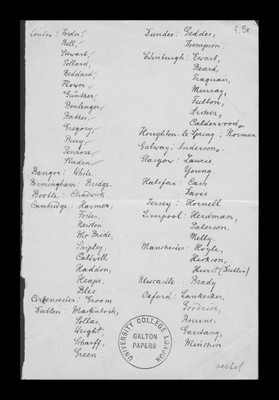 London: Foster
Bell
Stewart
Pollard
Beddard
Flower
Günther
Boulenger
Bather
Gregory
Perry
Penrose
Sladen
Bangor: White
Birmingham: Bridge
Bootle: Chadwick
Cambridge: Harmer,
Foster,
Newton
McBride,
Shipley,
Caldwell
Haddon,
Heape,
Sykes
Cirencester: Groom
Dublin: Mackintosh,
Sollas,
Wright,
Scharff,
Green
f. 5r
Dundee: Geddes,
Thompson
Edinburgh: Ewart,
Beard,
Traquair,
Murray,
Fulton,
Archer,
Calderwood
Houghton-le-Spring: Norman
Galway: Anderson
Glasgow: Laurie,
Young
Halifax: Cash
Davis
Jersey: Hornell
Liverpool: Herdman,
Paterson,
Melly
Manchester: Hoyle,
Hickson,
Hurst (Dublin)
Newcastle: Brady
Oxford: Lankester,
Goodrich,
Bourne,
Garstang,
Minchin
UNIVERSITY COLLEGE LONDON
GALTON
PAPERS